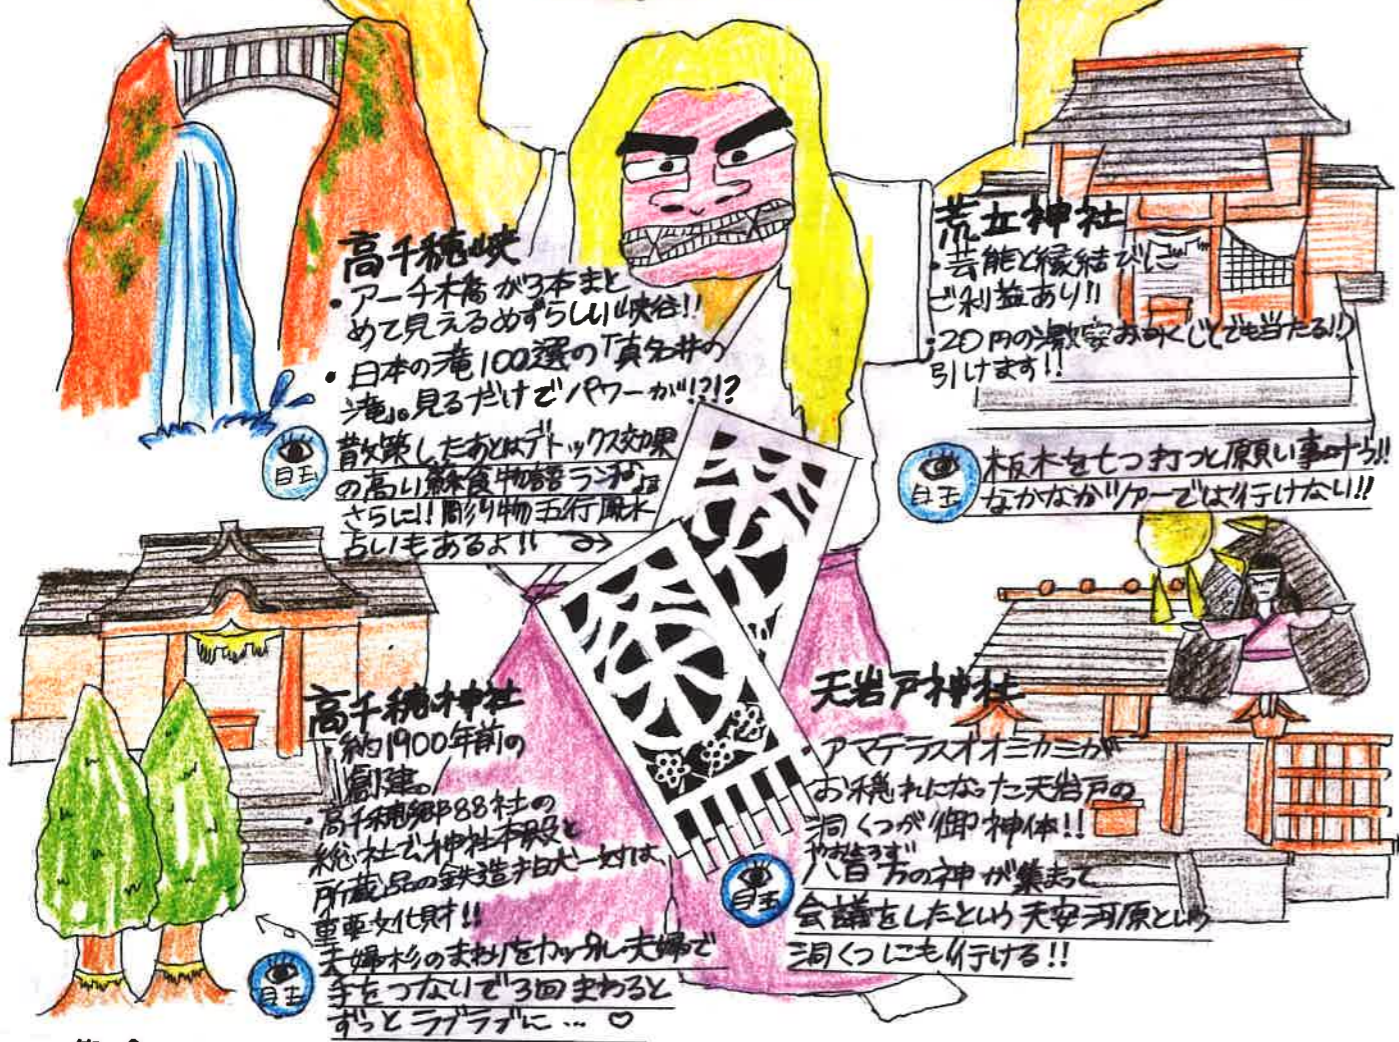 高千穂峡
・アーチ木橋が3本まと
めて見えるめずらしい峡谷!!
・日本の滝100選の「真名井の
滝」。見るだけでパワーが!?!?
目玉
散策したあとはデトックス効果
の高い蘇食物語ランチは
さらに!! 彫り物五行風水
占いもあるよ!!
荒立神社
・芸能と縁結びに
ご利益あり!!
・20円の激安おみくじ(とても当たる!!)
引けます!!
目玉
板木を七つ打つと願い事叶う!!
なかなかツアーでは行けない!!
高千穂神社
・約1900年前の
創建。
・高千穂郷88社の
総社で神社本殿と
所蔵品の鉄造狛犬一対は
重要文化財!!
目玉
夫婦杉のまわりをカップル・夫婦で
手をつないで3回まわると
ずっとラブラブに…♡
天岩戸神社
・アマテラスオオミカミが
お穏れになった天岩戸の
洞くつが御神体!!
やおよろず
目玉
八百万の神が集まって
会議をしたという天安河原という
洞くつにも行ける!!